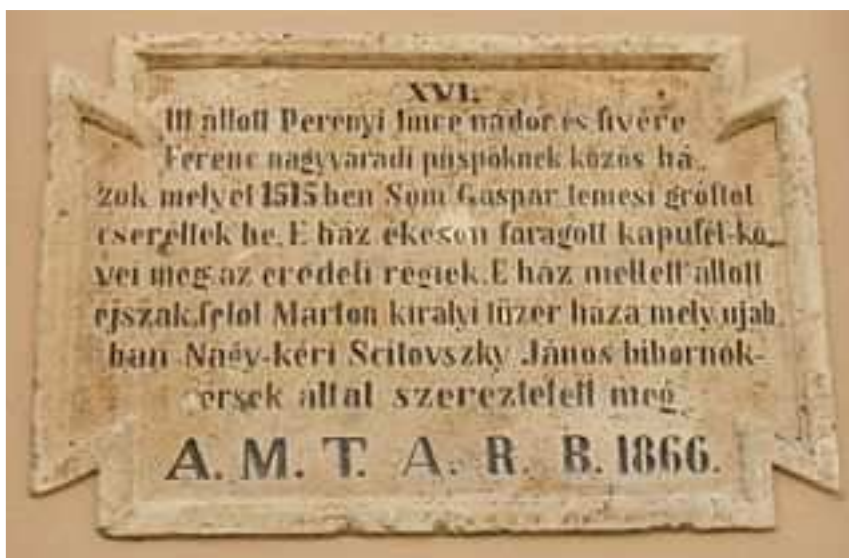 XVI.
Itt állott Perényi Imre nádor és fivére
Ferenc nagyváradi püspöknek közös há-
zok melyet 1515 ben Som Gáspár temesi gróftól
cseréltek be. E ház ékesen faragott kapufél-kö-
vei még az eredeti régiek. E ház mellett állott
éjszak felöl Márton királyi tüzér háza mely ujab
ban Nagy-kéri Scitovszky János bibornok-
érsek által szereztetett meg
A. M. T. A. R. B. 1866.